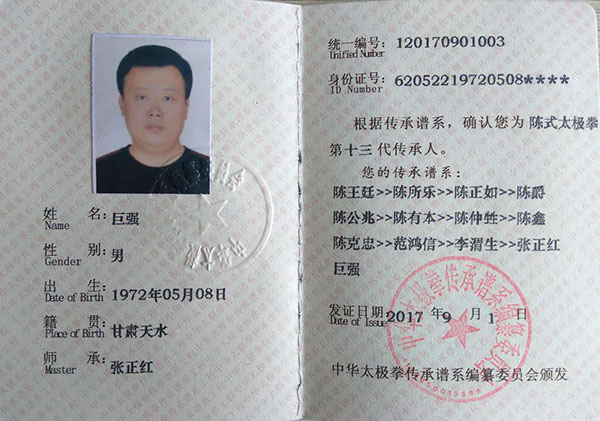 姓 名: 巨强
Name
性 别: 男
Gender
出 生: 1972年05月08日
Date of Birth
籍 贯: 甘肃天水
Place of Birth
师 承: 张正红
Master
统一编号: 120170901003
Unified Number
身份证号: 62052219720508****
ID Number
根据传承谱系,确认您为 陈式太极拳
第十三 代传承人。
您的传承谱系:
陈王廷>>陈所乐>>陈正如>>陈爵
陈公兆>>陈有本>>陈仲甡>>陈鑫
陈克忠>>范鸿信>>李渭生>>张正红
巨强
发证日期: 2017 年 9 月 1 日
Date of Issue
中华太极拳传承谱系编纂委员会颁发
中华太极拳传承谱系编纂委员会